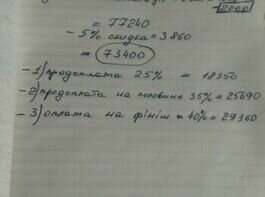 2000
= 77240
- 5% скидка = 3860
73400
- 1) предоплата 25% = 18350
- 2) предоплата на половине 35% = 25690
- 3) оплата на фініш = 40% = 29360